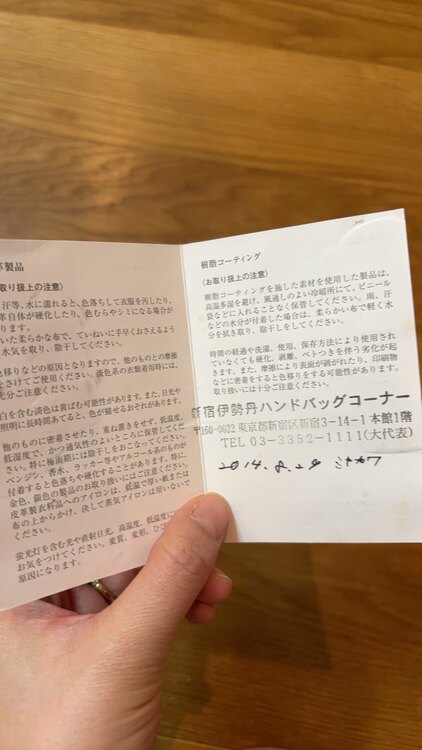 革製品
(お取り扱上の注意)
汗等、水に濡れると、色落ちして衣服を汚したり、
革自体が硬化したり、色むらやシミになる場合が
ります。
いた柔らかな布で、ていねいに手早くおさえるよう
水気を取り、陰干してください。
色移りなどの原因となりますので、他のものとの摩擦
をさけてご使用ください。淡色系の衣類着用時には、
充分ご注意ください。
白を含む淡色は黄ばむ可能性があります。また、日光や
照明に長時間あてると、色が褪せるおそれがあります。
他のものに密着させたり、重ね置きをせず、低温度、
低湿度で、かつ通気性のよいところに保管してくだ
さい。特に梅雨期には陰干しをおこなってください。
ベンジン、香水、ラッカー等やアルコール系のものが
付着すると色落ちや硬化することがあります。特に、
金色、銀色の製品のお取り扱いにはご注意ください。
皮革製衣料品へのアイロンは、低温で厚い紙または
布の上からかけ、決して蒸気アイロンは用いないで
ください。
蛍光灯を含む光や直射日光、高温度、低湿度に
お気をつけてください。変質、変形、ひび
原因になります。
樹脂コーティング
(お取り扱上の注意)
樹脂コーティングを施した素材を使用した製品は、
高温多湿を避け、風通しのよい冷暗所にて、ビニール
袋などに入れることなく保管してください。雨、汗
などの水分が付着した場合は、柔らかい布で軽く水
分を拭き取り、陰干しをしてください。
時間の経過や洗濯、使用、保存方法により使用され
ていなくても硬化、剥離、ベトつきを伴う劣化が起
きます。また、摩擦により表面が剥がれたり、印刷物
などに密着をすると色移りをする可能性があります。
取り扱いには十分ご注意ください。
新宿伊勢丹ハンドバッグコーナー
〒160-0022 東京都新宿区新宿3-14-1 本館1階
TEL 03-3352-1111(大代表)
2014.8.28 ミヤカワ